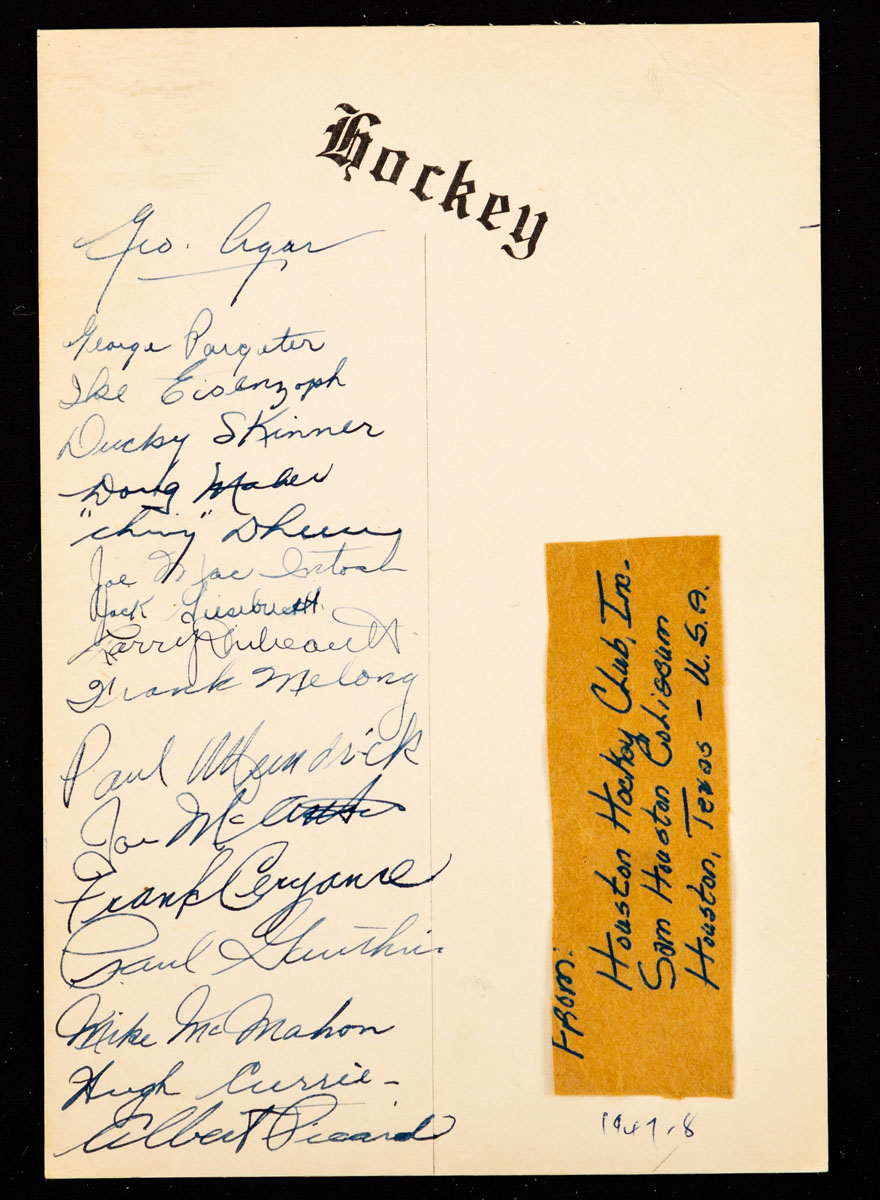 Hockey
Geo. Agar
George Pargeter
Ike Eisenzoph
Ducky Skinner
Doug
"Ching"
Joe Mac Intosh
Jack
Larry Thibeault
Frank Melong
Paul Mundrick
Joe Mc
Frank Ceryance
Paul Gauthier
Mike McMahon
Hugh Currie
Albert Picard
FROM:
Houston Hockey Club, Inc.
Sam Houston Coliseum
Houston, Texas - U.S.A.
1947-8